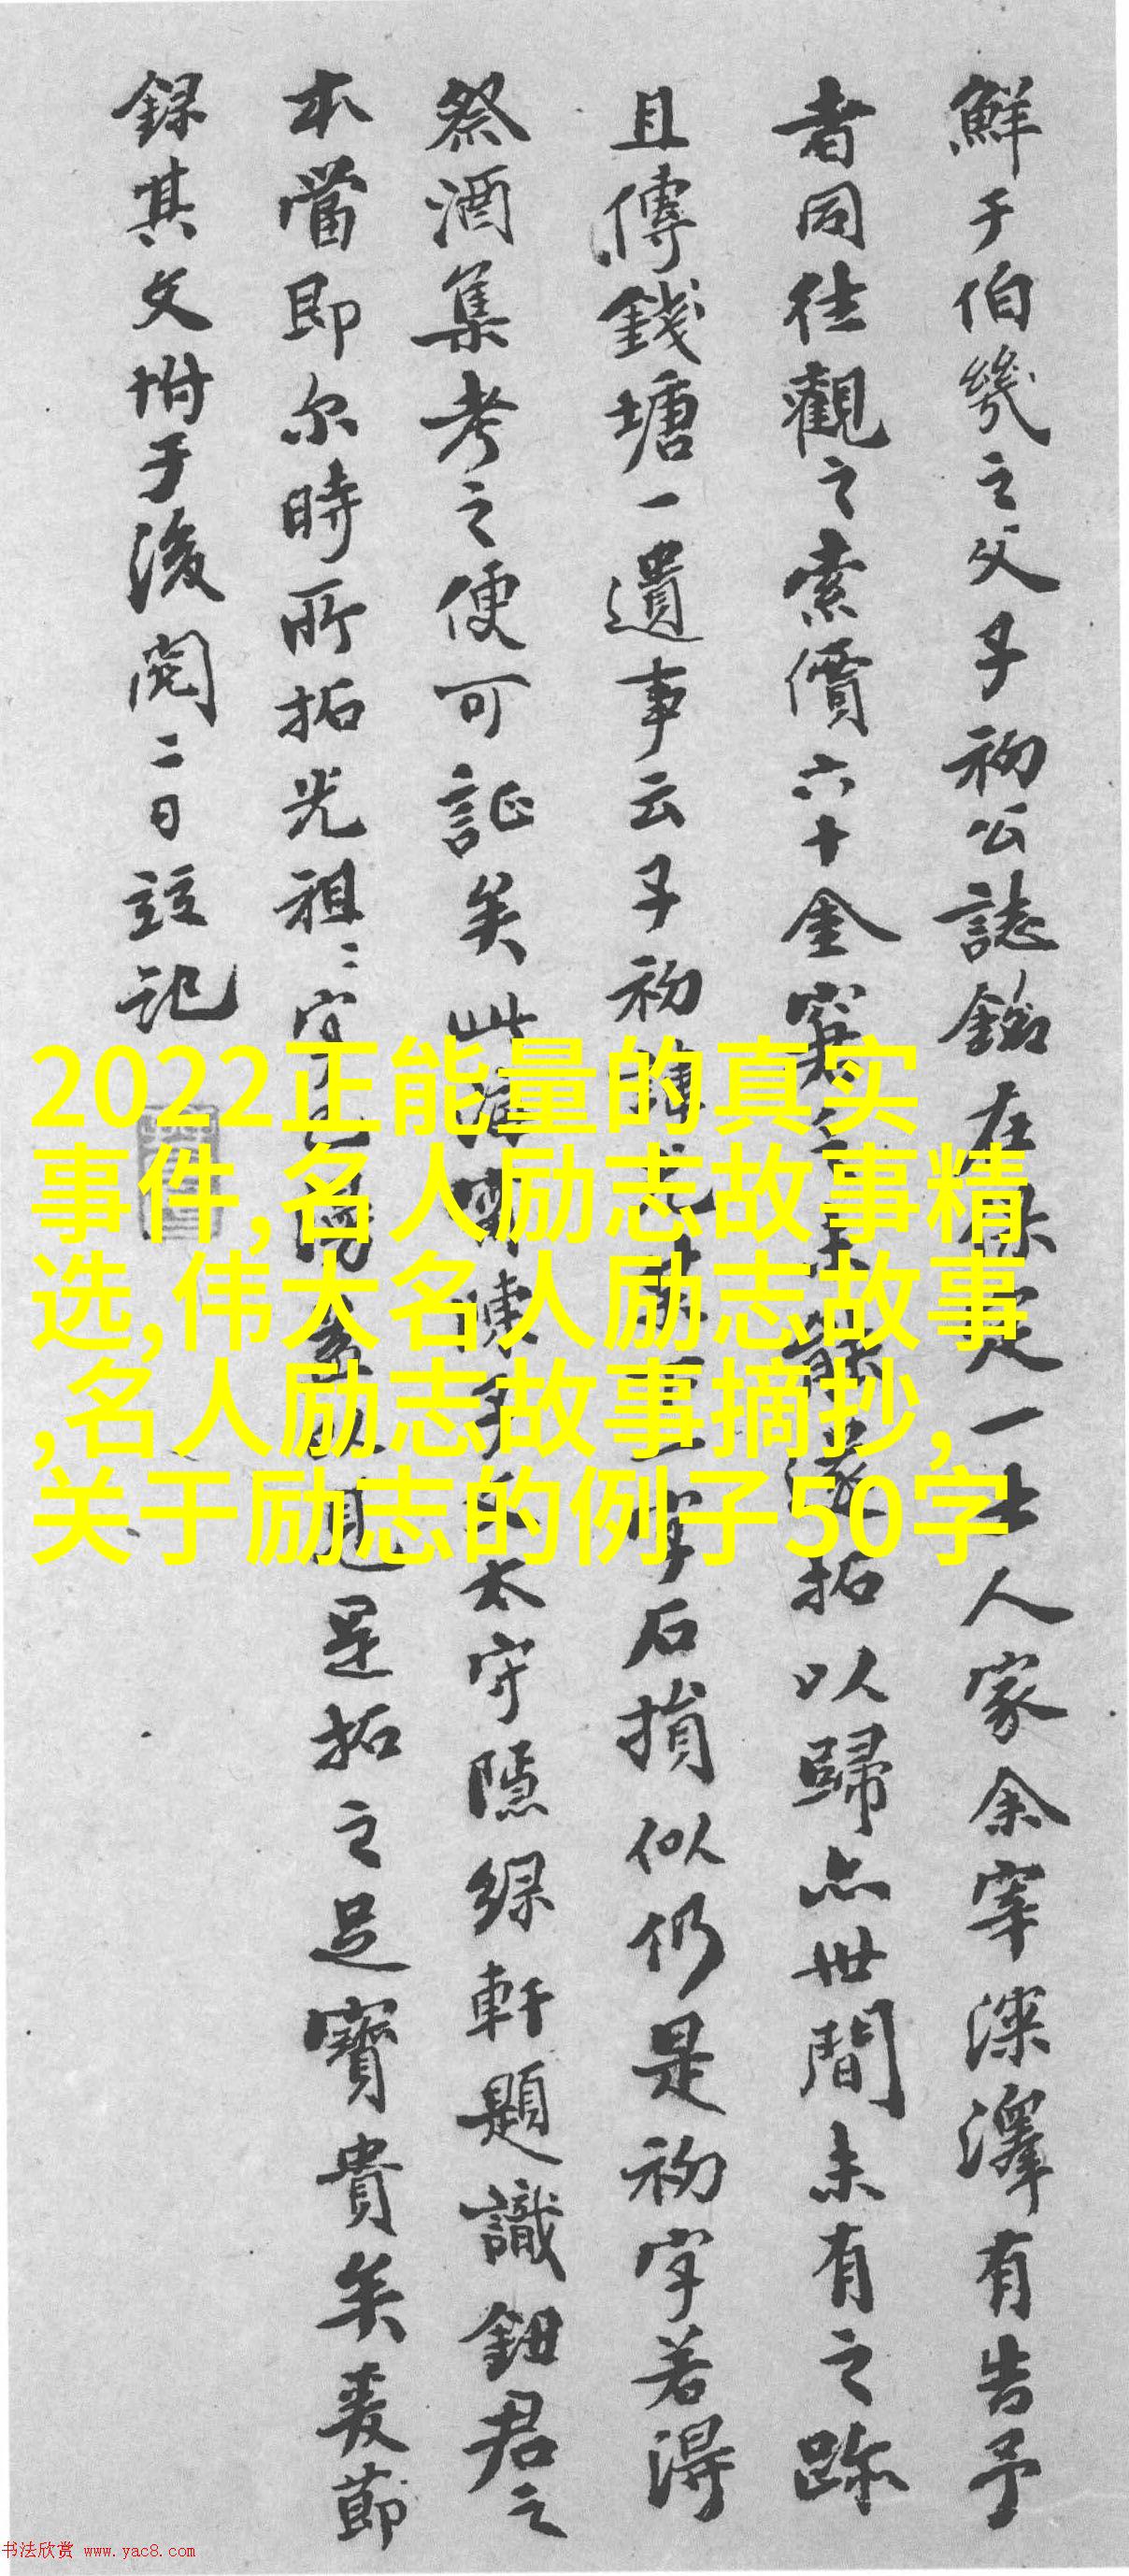 鮮于伯幾之父子初公誌銘在保定一士人家余宰深澤有告予
者同往觀之索價六十金窘之未能遂拓以歸亦世間未有之跡
且傳錢塘一遺事云子初諱光字石損似仍是初字若得
祭酒集考之便可証矣此陳子太守隱綠軒題識鈕君之
本當即尔時所拓光祖二字是拓之足寶貴矣爰節
錄其文坿于後閱二日記
2022正能量的真实
事件,名人励志故事精
选,伟大名人励志故事
,名人励志故事摘抄,
关于励志的例子50字
书法欣赏 www.yac8.com